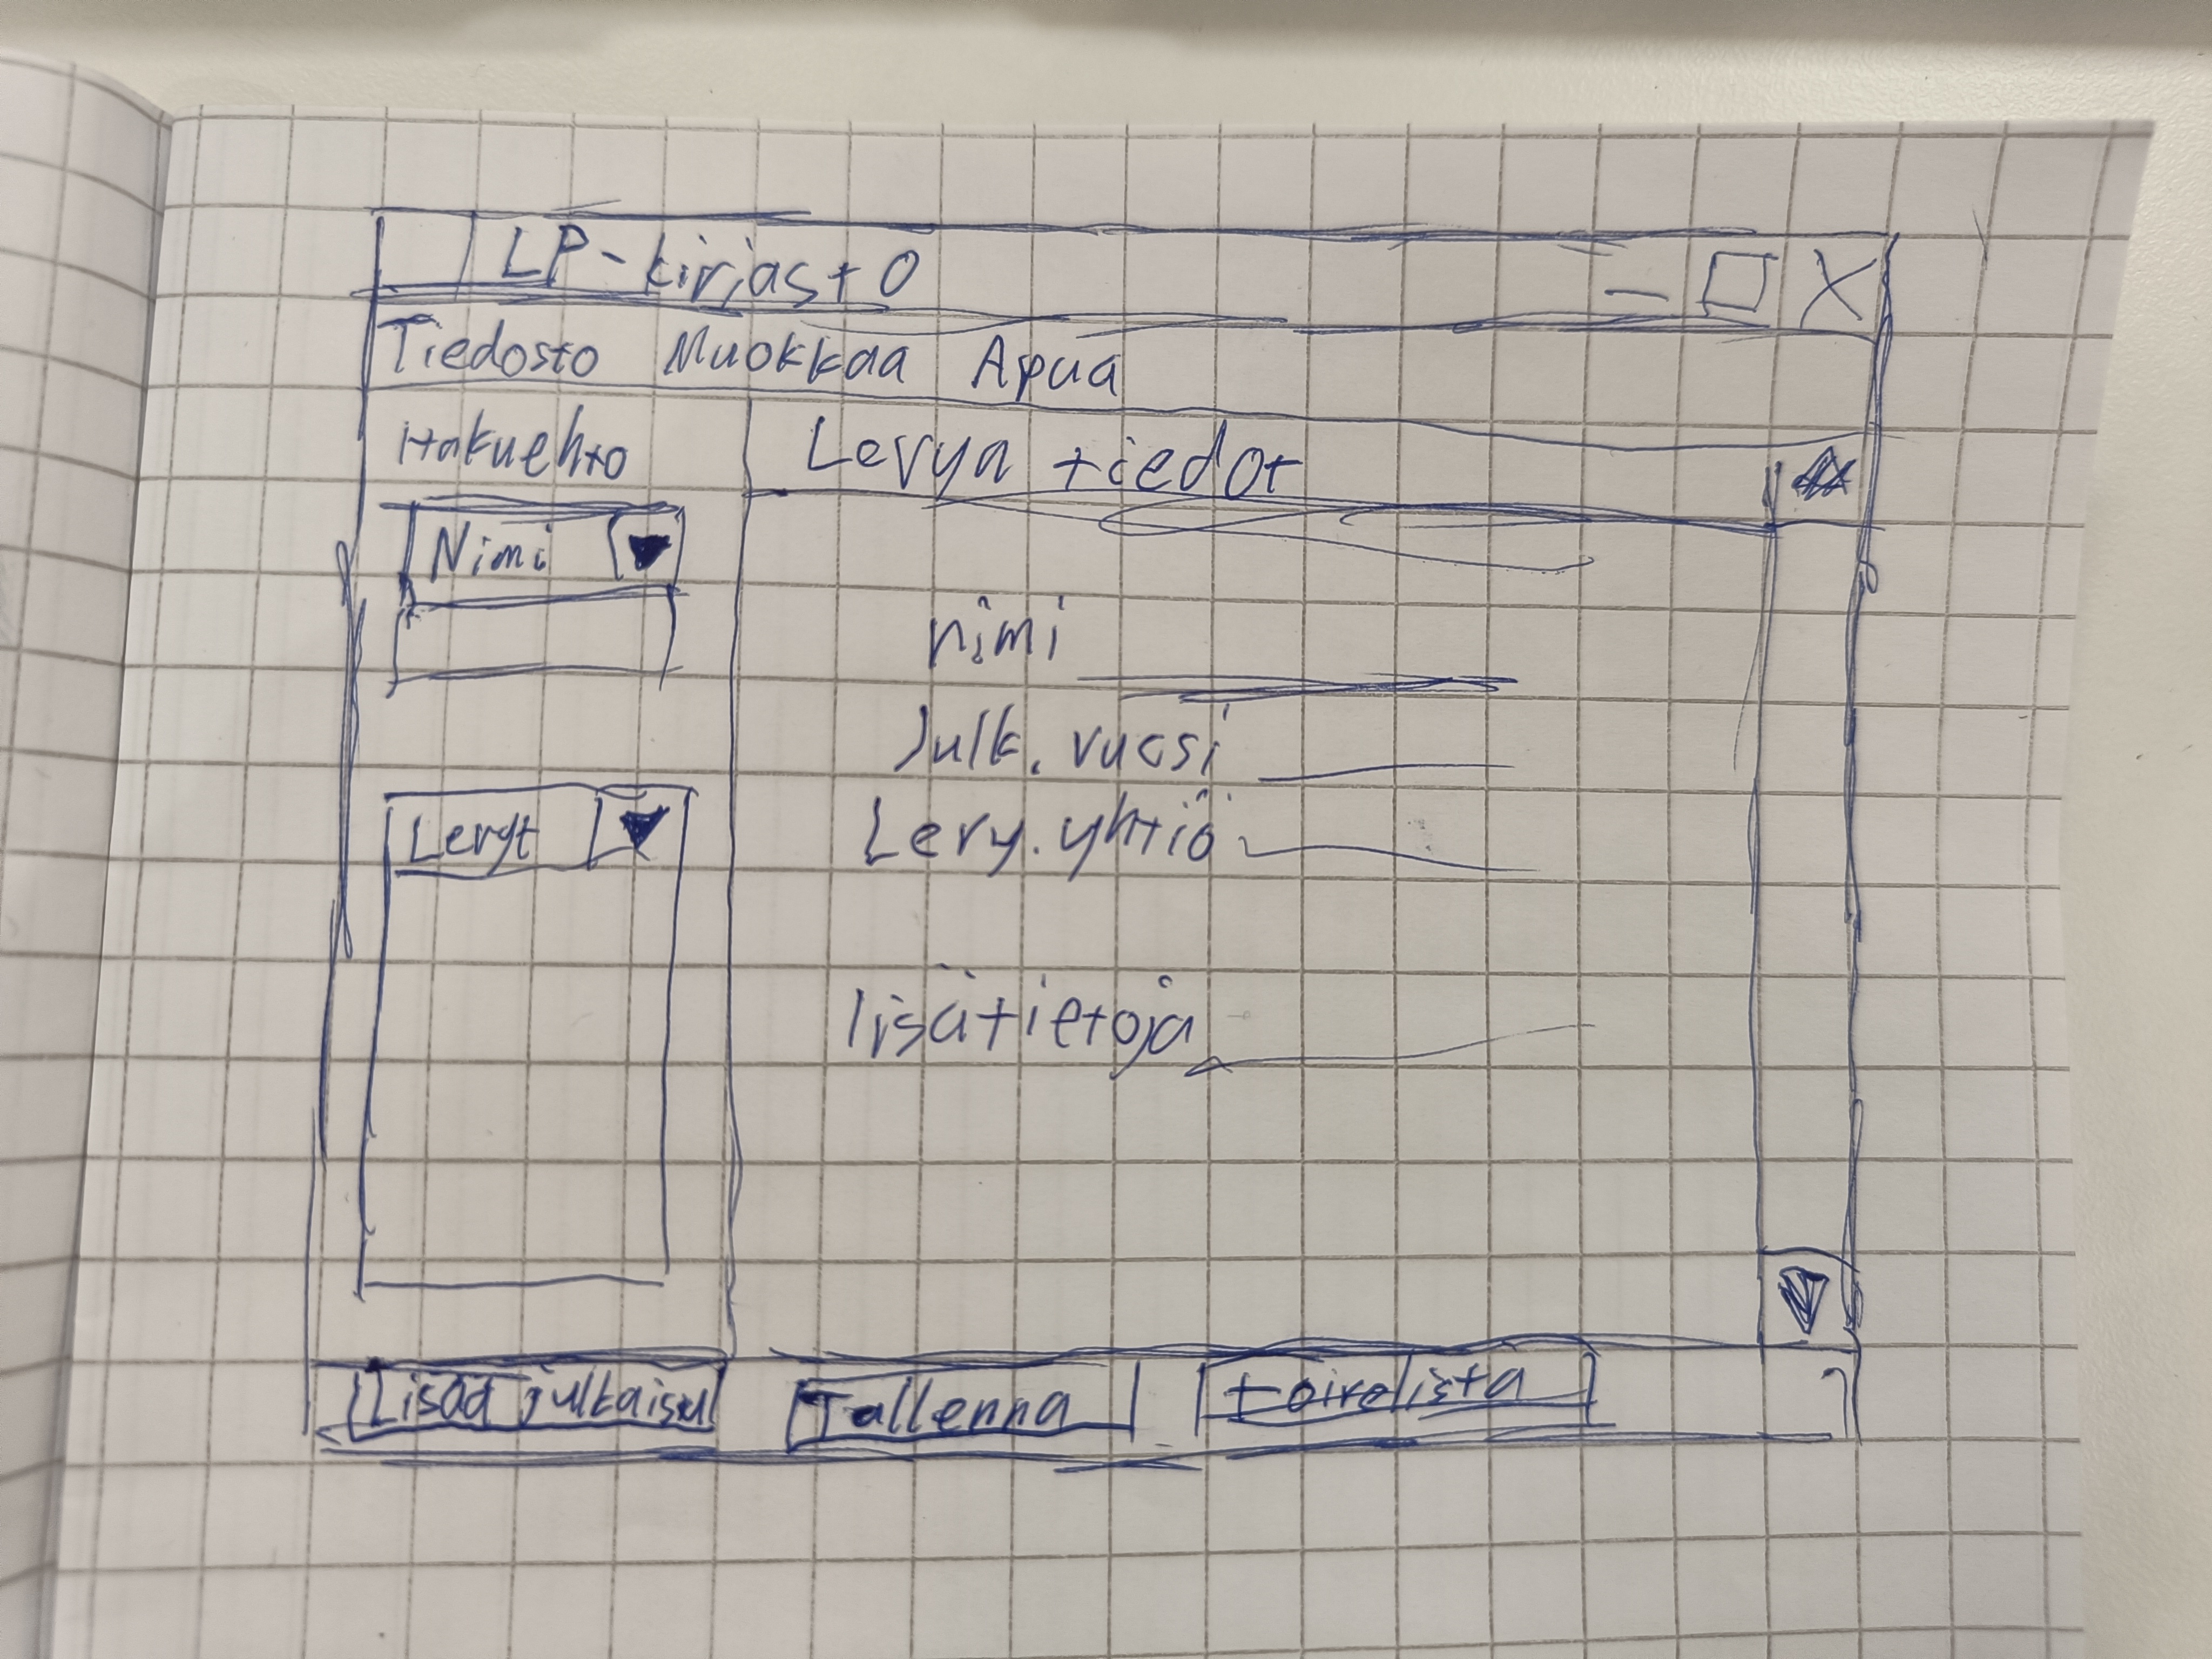 LP-kirjasto
Tiedosto Muokkaa Apua
Hakuehto
Nimi
Levyt
Levyn tiedot
nimi
Julk. vuosi
Levy. yhtiö
lisätietoja
Lisää julkaisu
Tallenna
toivelista